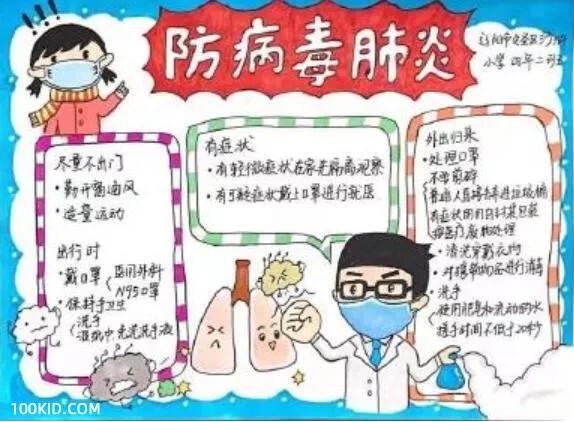 防病毒肺炎
小学 四年二班
尽量不出门
·勤开窗通风
·适量运动
出行时
·戴口罩 医用外科
N95口罩
·保持手卫生
洗手
有症状
·有轻微症状在家先隔离观察
·有可疑症状戴上口罩进行就医
外出归来
·处理口罩
普通人直接丢弃进垃圾桶
按医疗废物处理
·清洗穿戴衣物
·对携带物品进行消毒
·洗手
使用肥皂和流动的水
搓手时间不低于20秒
100KID.COM